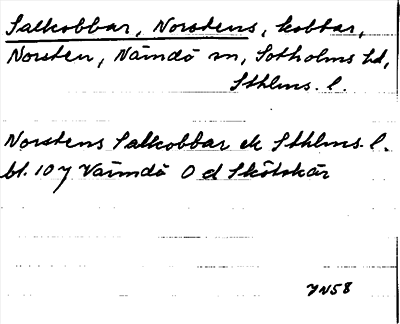 Salkobbar, Norstens, kobbar,
Norsten, Nämdö sn, Sotholms hd,
Sthlms. l.
Norstens Salkobbar ek Sthlms. l.
bl. 107 Värmdö O d Skötskär
JN58